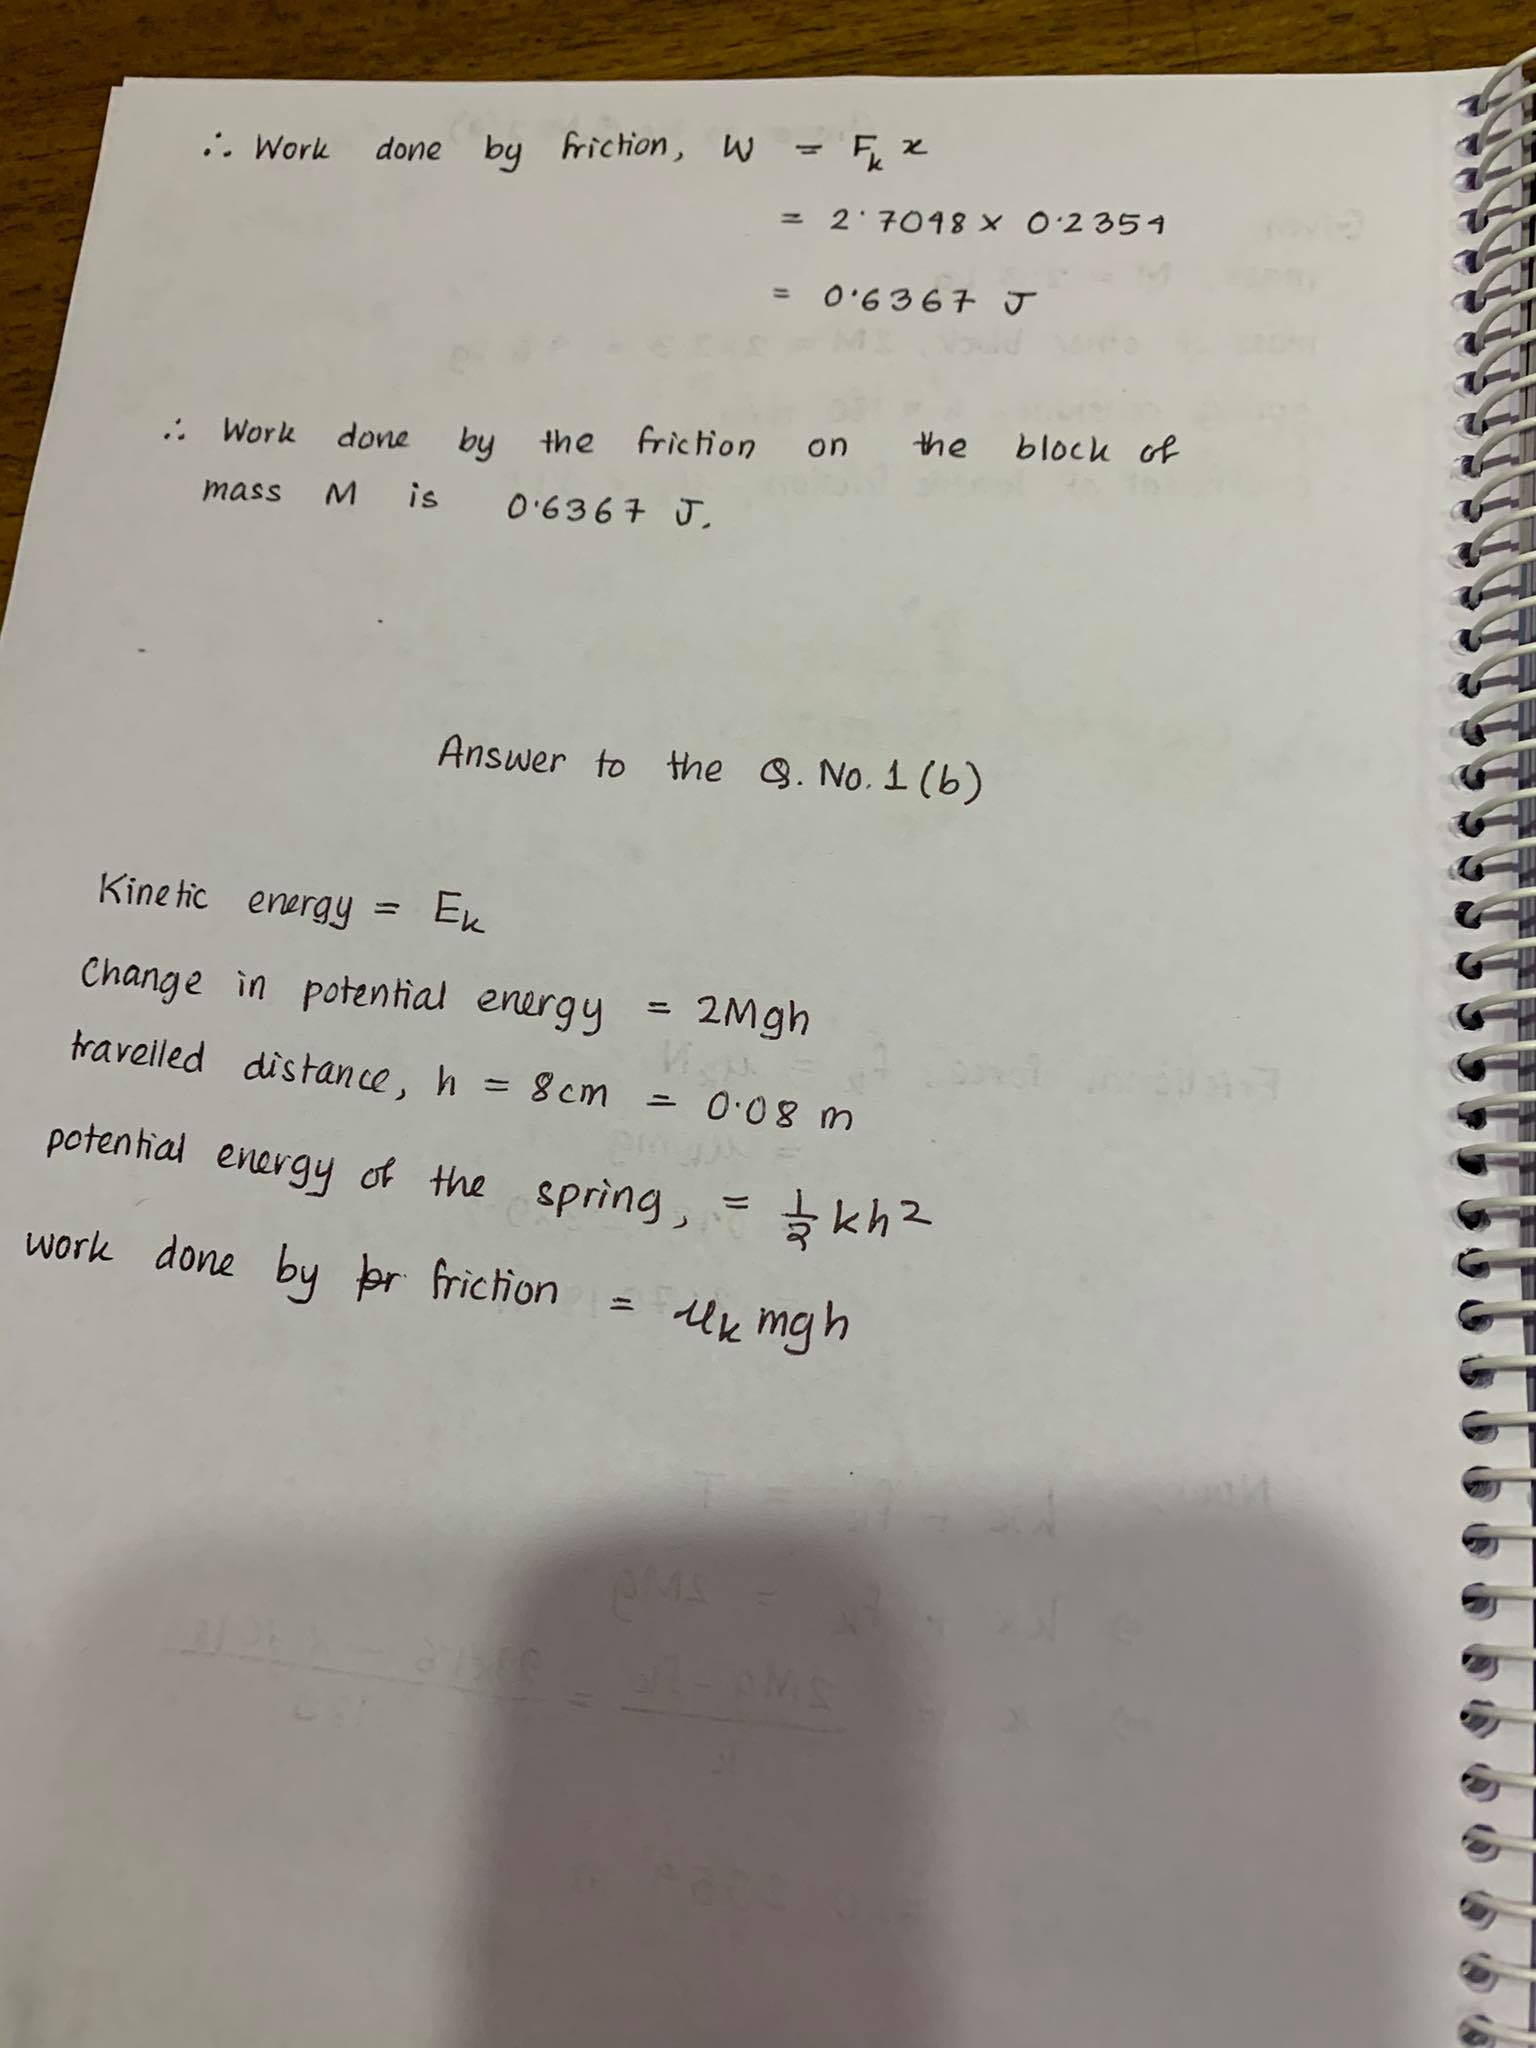 ∴ Work done by friction, W = Fₖ x
= 2.7048 × 0.2354
= 0.6367 J
∴ Work done by the friction on the block of
mass M is 0.6367 J.
Answer to the Q. No. 1 (b)
Kinetic energy = Eₖ
Change in potential energy = 2Mgh
travelled distance, h = 8cm = 0.08 m
potential energy of the spring, = 1/2 kh²
work done by friction = μₖ mgh